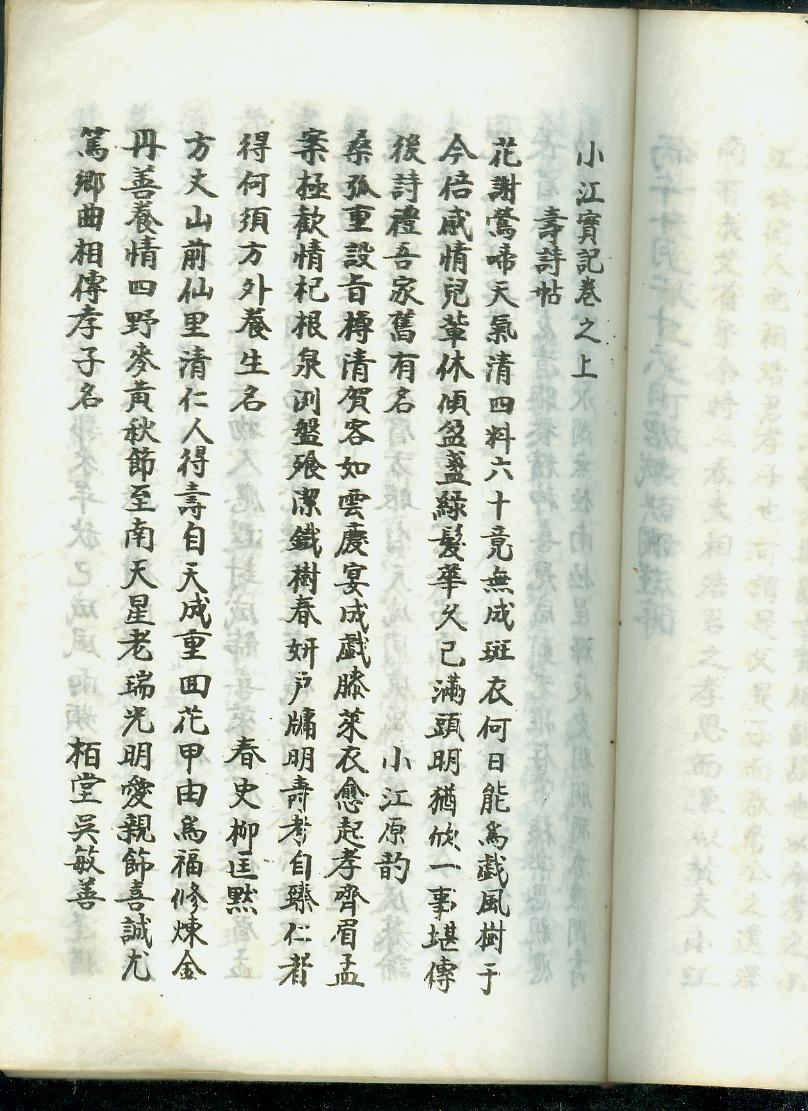 小江實記卷之上
壽詩帖
花謝鶯啼天氣清四料六十竟無成斑衣何日能爲戱風樹于
今倍感情兒輩休傾盆盞綠髮華久已滿頭明猶欣一事堪傳
後詩禮吾家舊有名 小江原韵
桑弧重設旨樽清賀客如雲慶宴成戱膝萊衣愈起孝齊眉孟
案極歡情杞根泉洌盤飱潔鐵樹春妍戶牖明壽考自臻仁者
得何須方外養生名 春史柳匡黙
方丈山前仙里清仁人得壽自天成重回花甲由爲福修煉金
丹善養情四野麥黃秋節至南天星老瑞光明愛親餙喜誠尤
篤鄉曲相傳孝子名 栢堂吳敏善